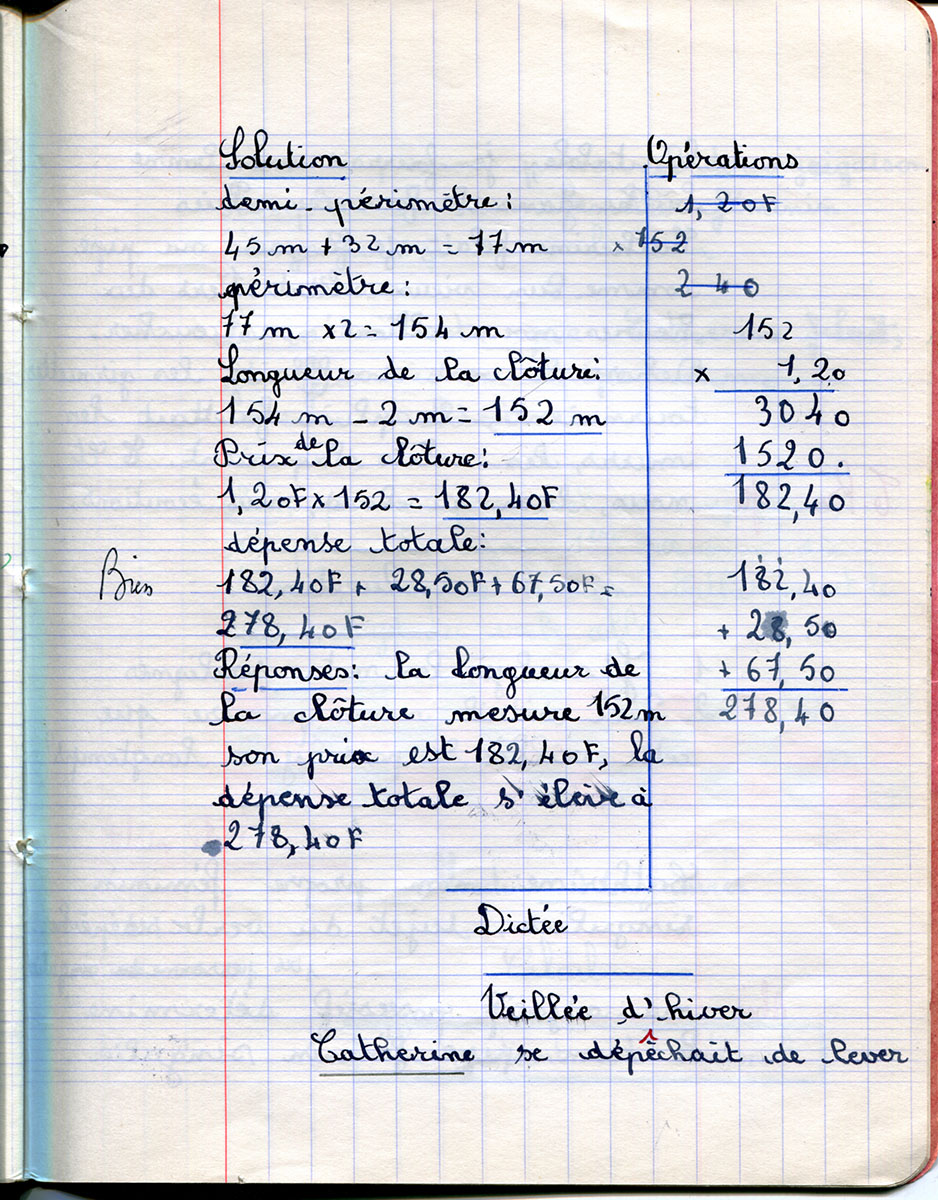 Solution
demi-périmètre:
45 m + 32 m = 77 m
périmètre:
77 m x2 = 154 m
Longueur de la clôture:
154 m - 2 m = 152 m
Prix de la clôture:
1,20F x 152 = 182,40F
dépense totale:
Bien
182,40F + 28,50F + 67,50F =
278,40F
Réponses: la longueur de
la clôture mesure 152m
son prix est 182,40F, la
dépense totale s'élève à
278,40F
Opérations
1,20F
x 152
2 40
152
x 1,20
3040
1520.
182,40
182,40
+ 28,50
+ 67,50
278,40
Dictée
Veillée d'hiver
Catherine se dépêchait de lever